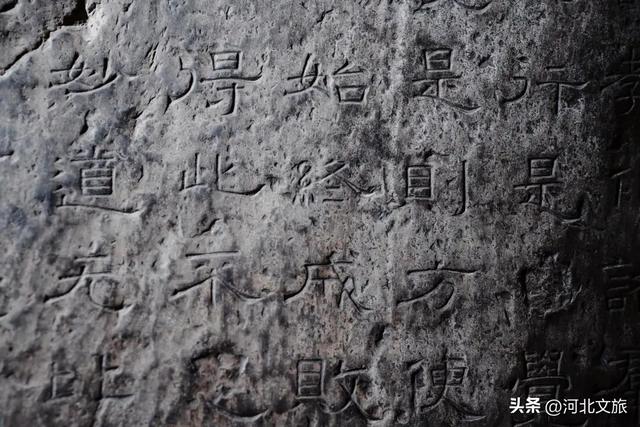 行是覺
是則方便
始終成敗
得此不
妙道先
头条 @河北文旅